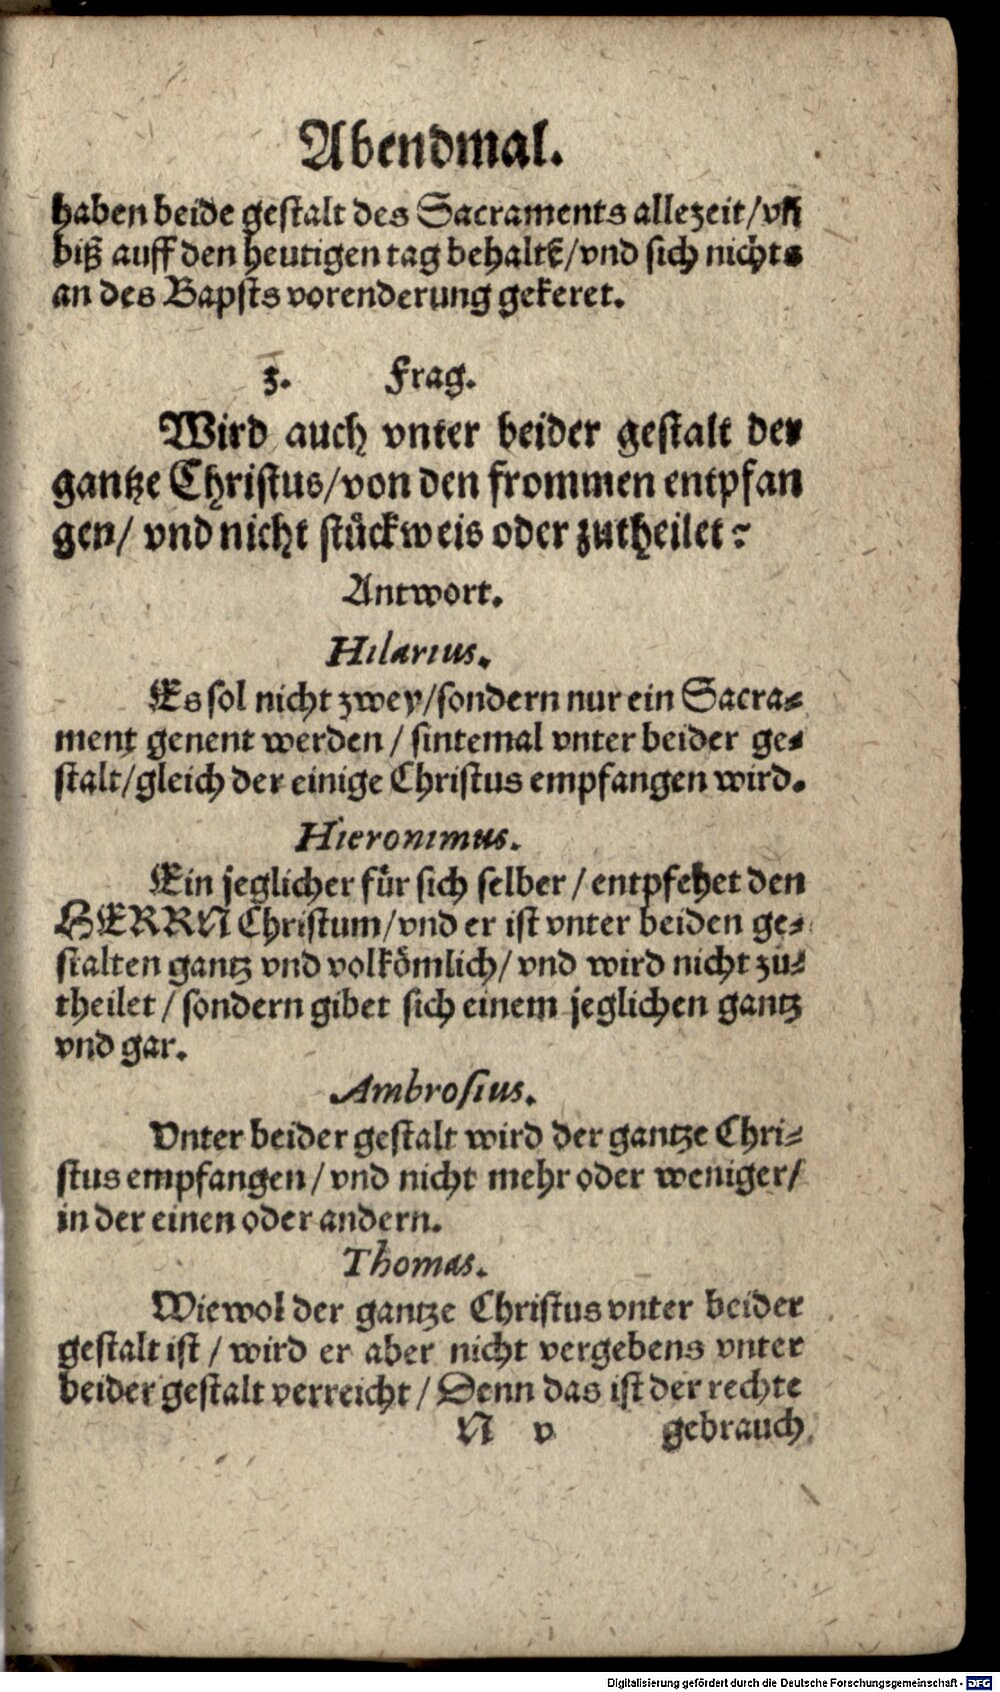 Abendmal.
haben beide gestalt des Sacraments allezeit/vn̄
biß auff den heutigen tag behaltẽ/vnd sich nichts
an des Bapsts vorenderung gekeret.
3. Frag.
Wird auch vnter beider gestalt der
gantze Christus/von den frommen entpfan
gen/ vnd nicht stückweis oder zutheilet?
Antwort.
Hilarius.
Es sol nicht zwey/sondern nur ein Sacra-
ment genent werden / sintemal vnter beider ge-
stalt/gleich der einige Christus empfangen wird.
Hieronimus.
Ein jeglicher für sich selber / entpfehet den
HERRN Christum/vnd er ist vnter beiden ge-
stalten gantz vnd volkömlich/ vnd wird nicht zu-
theilet / sondern gibet sich einem jeglichen gantz
vnd gar.
Ambrosius.
Vnter beider gestalt wird der gantze Chri-
stus empfangen / vnd nicht mehr oder weniger/
in der einen oder andern.
Thomas.
Wiewol der gantze Christus vnter beider
gestalt ist / wird er aber nicht vergebens vnter
beider gestalt verreicht / Denn das ist der rechte
N v gebrauch
Digitalisierung gefördert durch die Deutsche Forschungsgemeinschaft - DFG